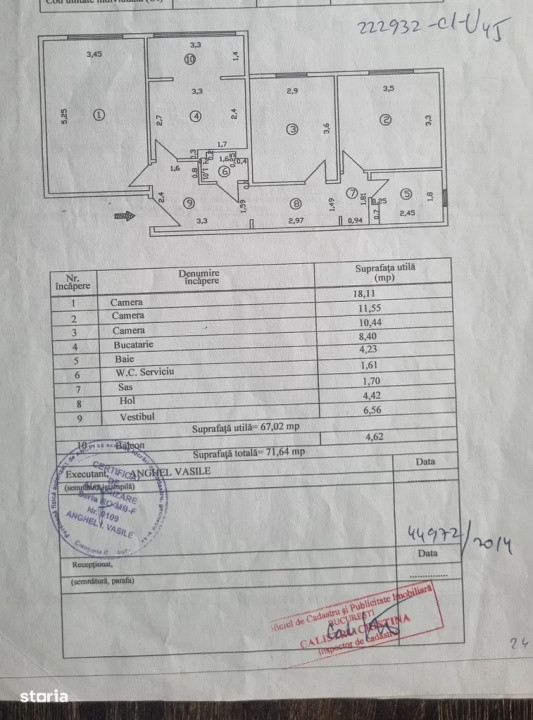 222932-C1-U45
3,45
3,3
10
1,4
5,25
1
3,3
4
2,4
2,7
1,7
2,9
3
3,6
3,5
2
3,3
1,6
6
0,4
1,6
0,8
2,4
9
3,3
1,59
8
2,97
1,49
7
1,81
0,94
0,25
0,7
5
2,45
1,8
Nr. încăpere Denumire încăpere Suprafaţa utilă (mp)
1 Camera 18,11
2 Camera 11,55
3 Camera 10,44
4 Bucatarie 8,40
5 Baie 4,23
6 W.C. Serviciu 1,61
7 Sas 1,70
8 Hol 4,42
9 Vestibul 6,56
Suprafaţă utilă= 67,02 mp
10 Balcon 4,62
Suprafaţă totală= 71,64 mp
Executant, ANGHEL VASILE Data
(semnătura, ştampilă)
CERTIFICAT
DE
AUTORIZARE
Seria
Nr. 0109
ANGHEL I. VASILE
44972/2014
Data
Recepţionat,
(semnătură, parafa)
Oficiul de Cadastru şi Publicitate Imobiliară
BUCUREŞTI
Inspector de cadastru
24
storia